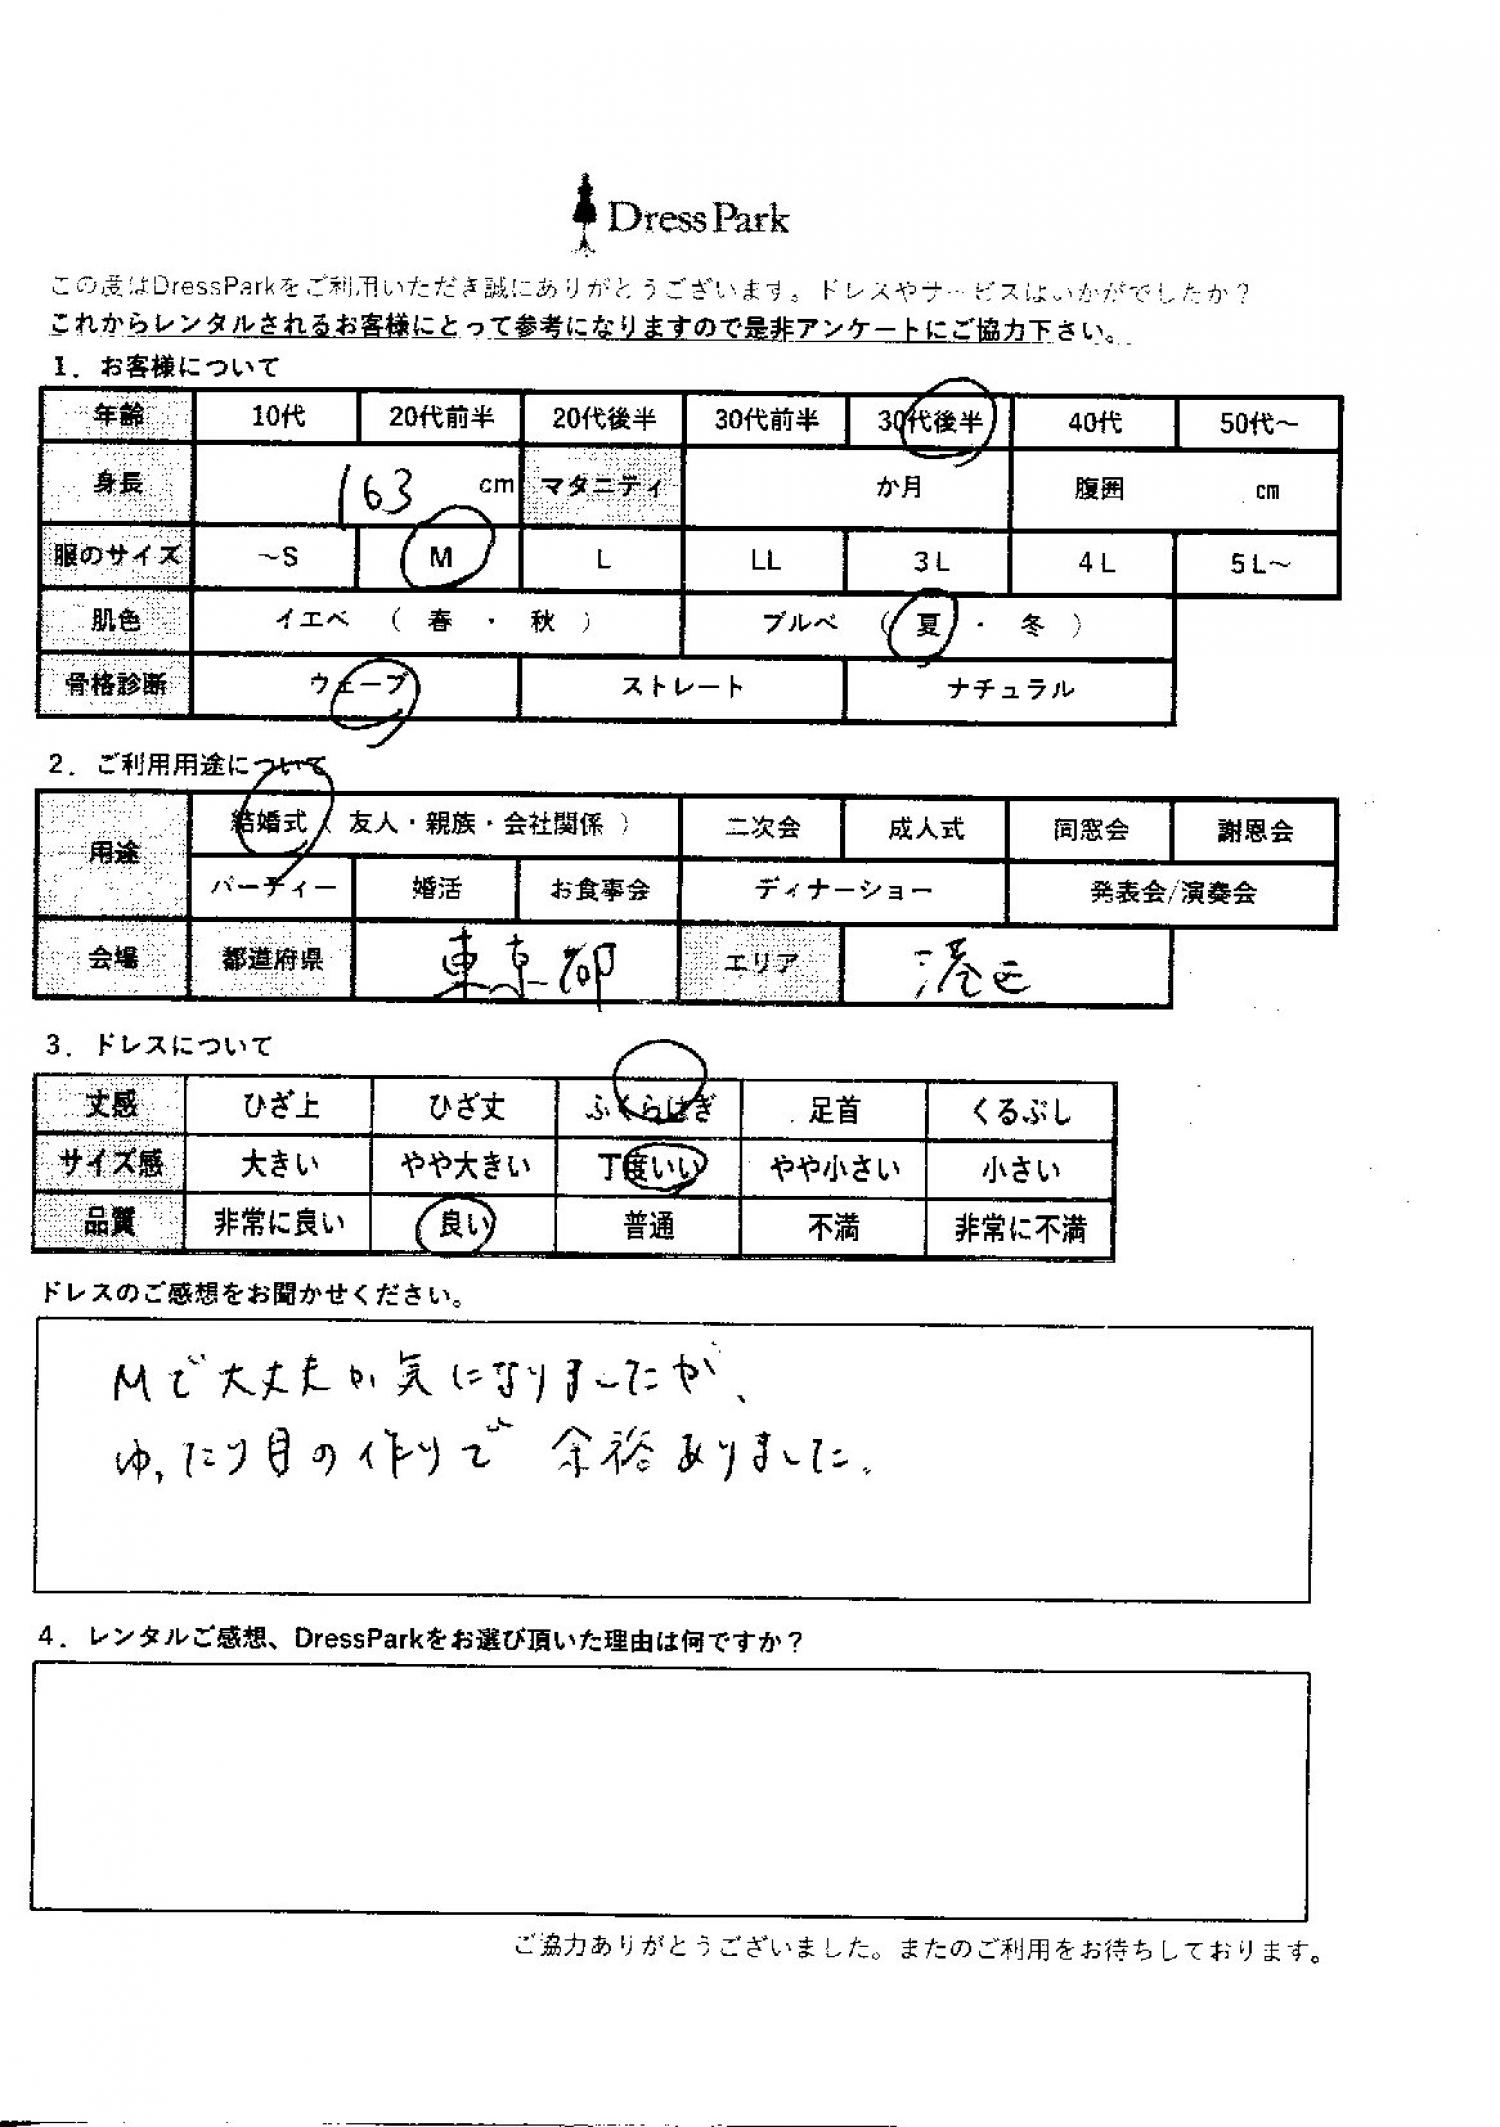 Dress Park
この度はDressParkをご利用いただき誠にありがとうございます。ドレスやサービスはいかがでしたか？
これからレンタルされるお客様にとって参考になりますので是非アンケートにご協力下さい。
1．お客様について
年齢 10代 20代前半 20代後半 30代前半 30代後半 40代 50代～
身長 163 cm マタニティ か月 腹囲 cm
服のサイズ ～S M L LL 3L 4L 5L～
肌色 イエベ （ 春 ・ 秋 ） ブルベ （ 夏 ・ 冬 ）
骨格診断 ウェーブ ストレート ナチュラル
2．ご利用用途について
用途 結婚式（ 友人・親族・会社関係 ） 二次会 成人式 同窓会 謝恩会
パーティー 婚活 お食事会 ディナーショー 発表会/演奏会
会場 都道府県 東京都 エリア 港区
3．ドレスについて
丈感 ひざ上 ひざ丈 ふくらはぎ 足首 くるぶし
サイズ感 大きい やや大きい 丁度いい やや小さい 小さい
品質 非常に良い 良い 普通 不満 非常に不満
ドレスのご感想をお聞かせください。
Mで大丈夫か気になりましたが、
ゆったり目の作りで余裕ありました。
4．レンタルご感想、DressParkをお選び頂いた理由は何ですか？
ご協力ありがとうございました。またのご利用をお待ちしております。